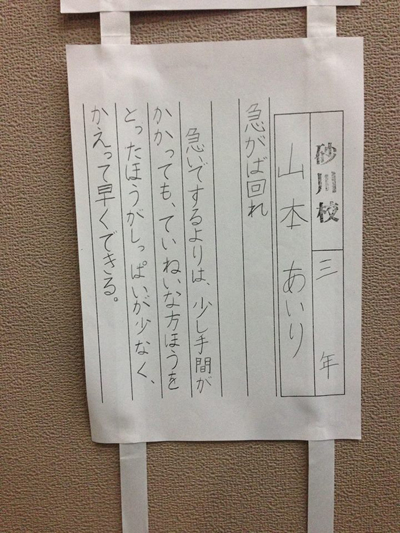 砂川校 三年
山本 あいり
急がば回れ
急いでするよりは、少し手間が
かかっても、ていねいな方ほうを
とったほうがしっぱいが少なく、
かえって早くできる。